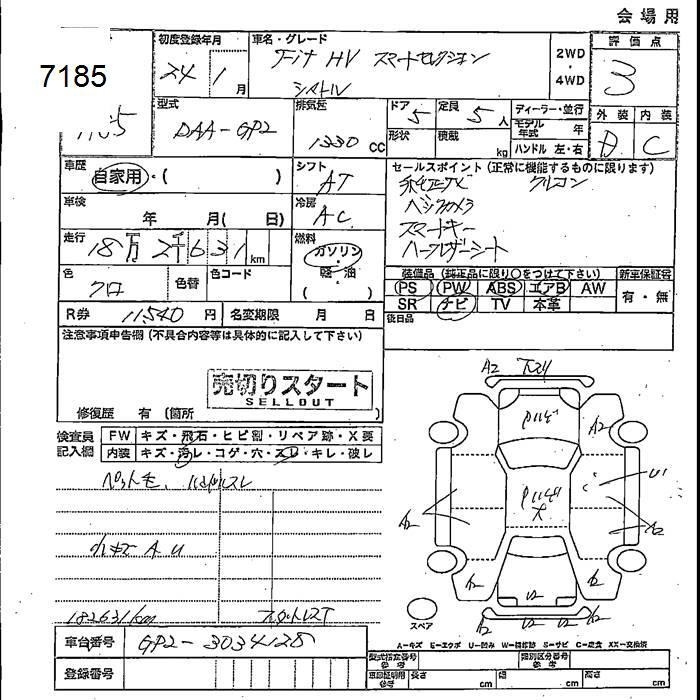 会場用
7185
初度登録年月
24 1 月
車名・グレード
Fit HV スマートセレクション
2WD
・
4WD
評価点
3
型式
DAA-GP2
排気量
1330 CC
ドア
5
定員
5 人
形状
積載
kg
ディーラー・並行
モデル年式 年
ハンドル 左・右
外装 内装
D C
車歴
自家用・( )
シフト
AT
車検
年 月( 日)
冷房
AC
走行
18万2千631 km
燃料
ガソリン・軽・油
( )
色
クロ
色替
色コード
R券 11540 円
名変期限 月 日
セールスポイント (正常に機能するものに限ります)
純正ナビ クルコン
バックカメラ
スマートキー
ハーフレザーシート
装備品 (純正品に限り○をつけて下さい)
新車保証書
PS PW ABS エアB AW
SR ナビ TV 本革
有・無
後日品
注意事項申告欄 (不具合内容等は具体的に記入して下さい)
売切りスタート
SELLOUT
修復歴 有 (箇所
検査員
記入欄
FW キズ・飛石・ヒビ割・リペア跡・X要
内装 キズ・汚レ・コゲ・穴・スレ・キレ・破レ
ペット毛、ハンドルスレ
小キズ A U
182631km
スタッドレスT
車台番号 GP2-3034128
登録番号
A2
A2
A2
A2
A2
U2
U2
A2
U2
U2
A2
スペア
A-キズ E-エクボ U-凹み W-補修跡 S-サビ C-腐食 XX-交換済
型式指定番号
参考
類別区分番号
参考
車庫証明用
参考
長さ cm
幅 cm
高さ cm